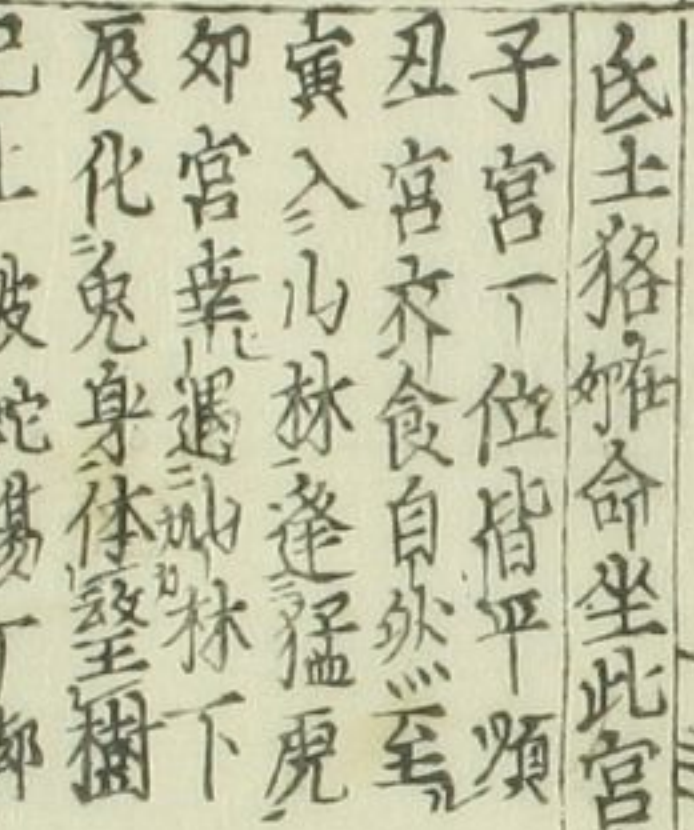 氐土狢 命坐此宮
子宮一丁位皆平順
丑宮衣食自然至
寅入山林逢猛虎
卯宮幸遇 林下
辰化兔身体 樹
蛇